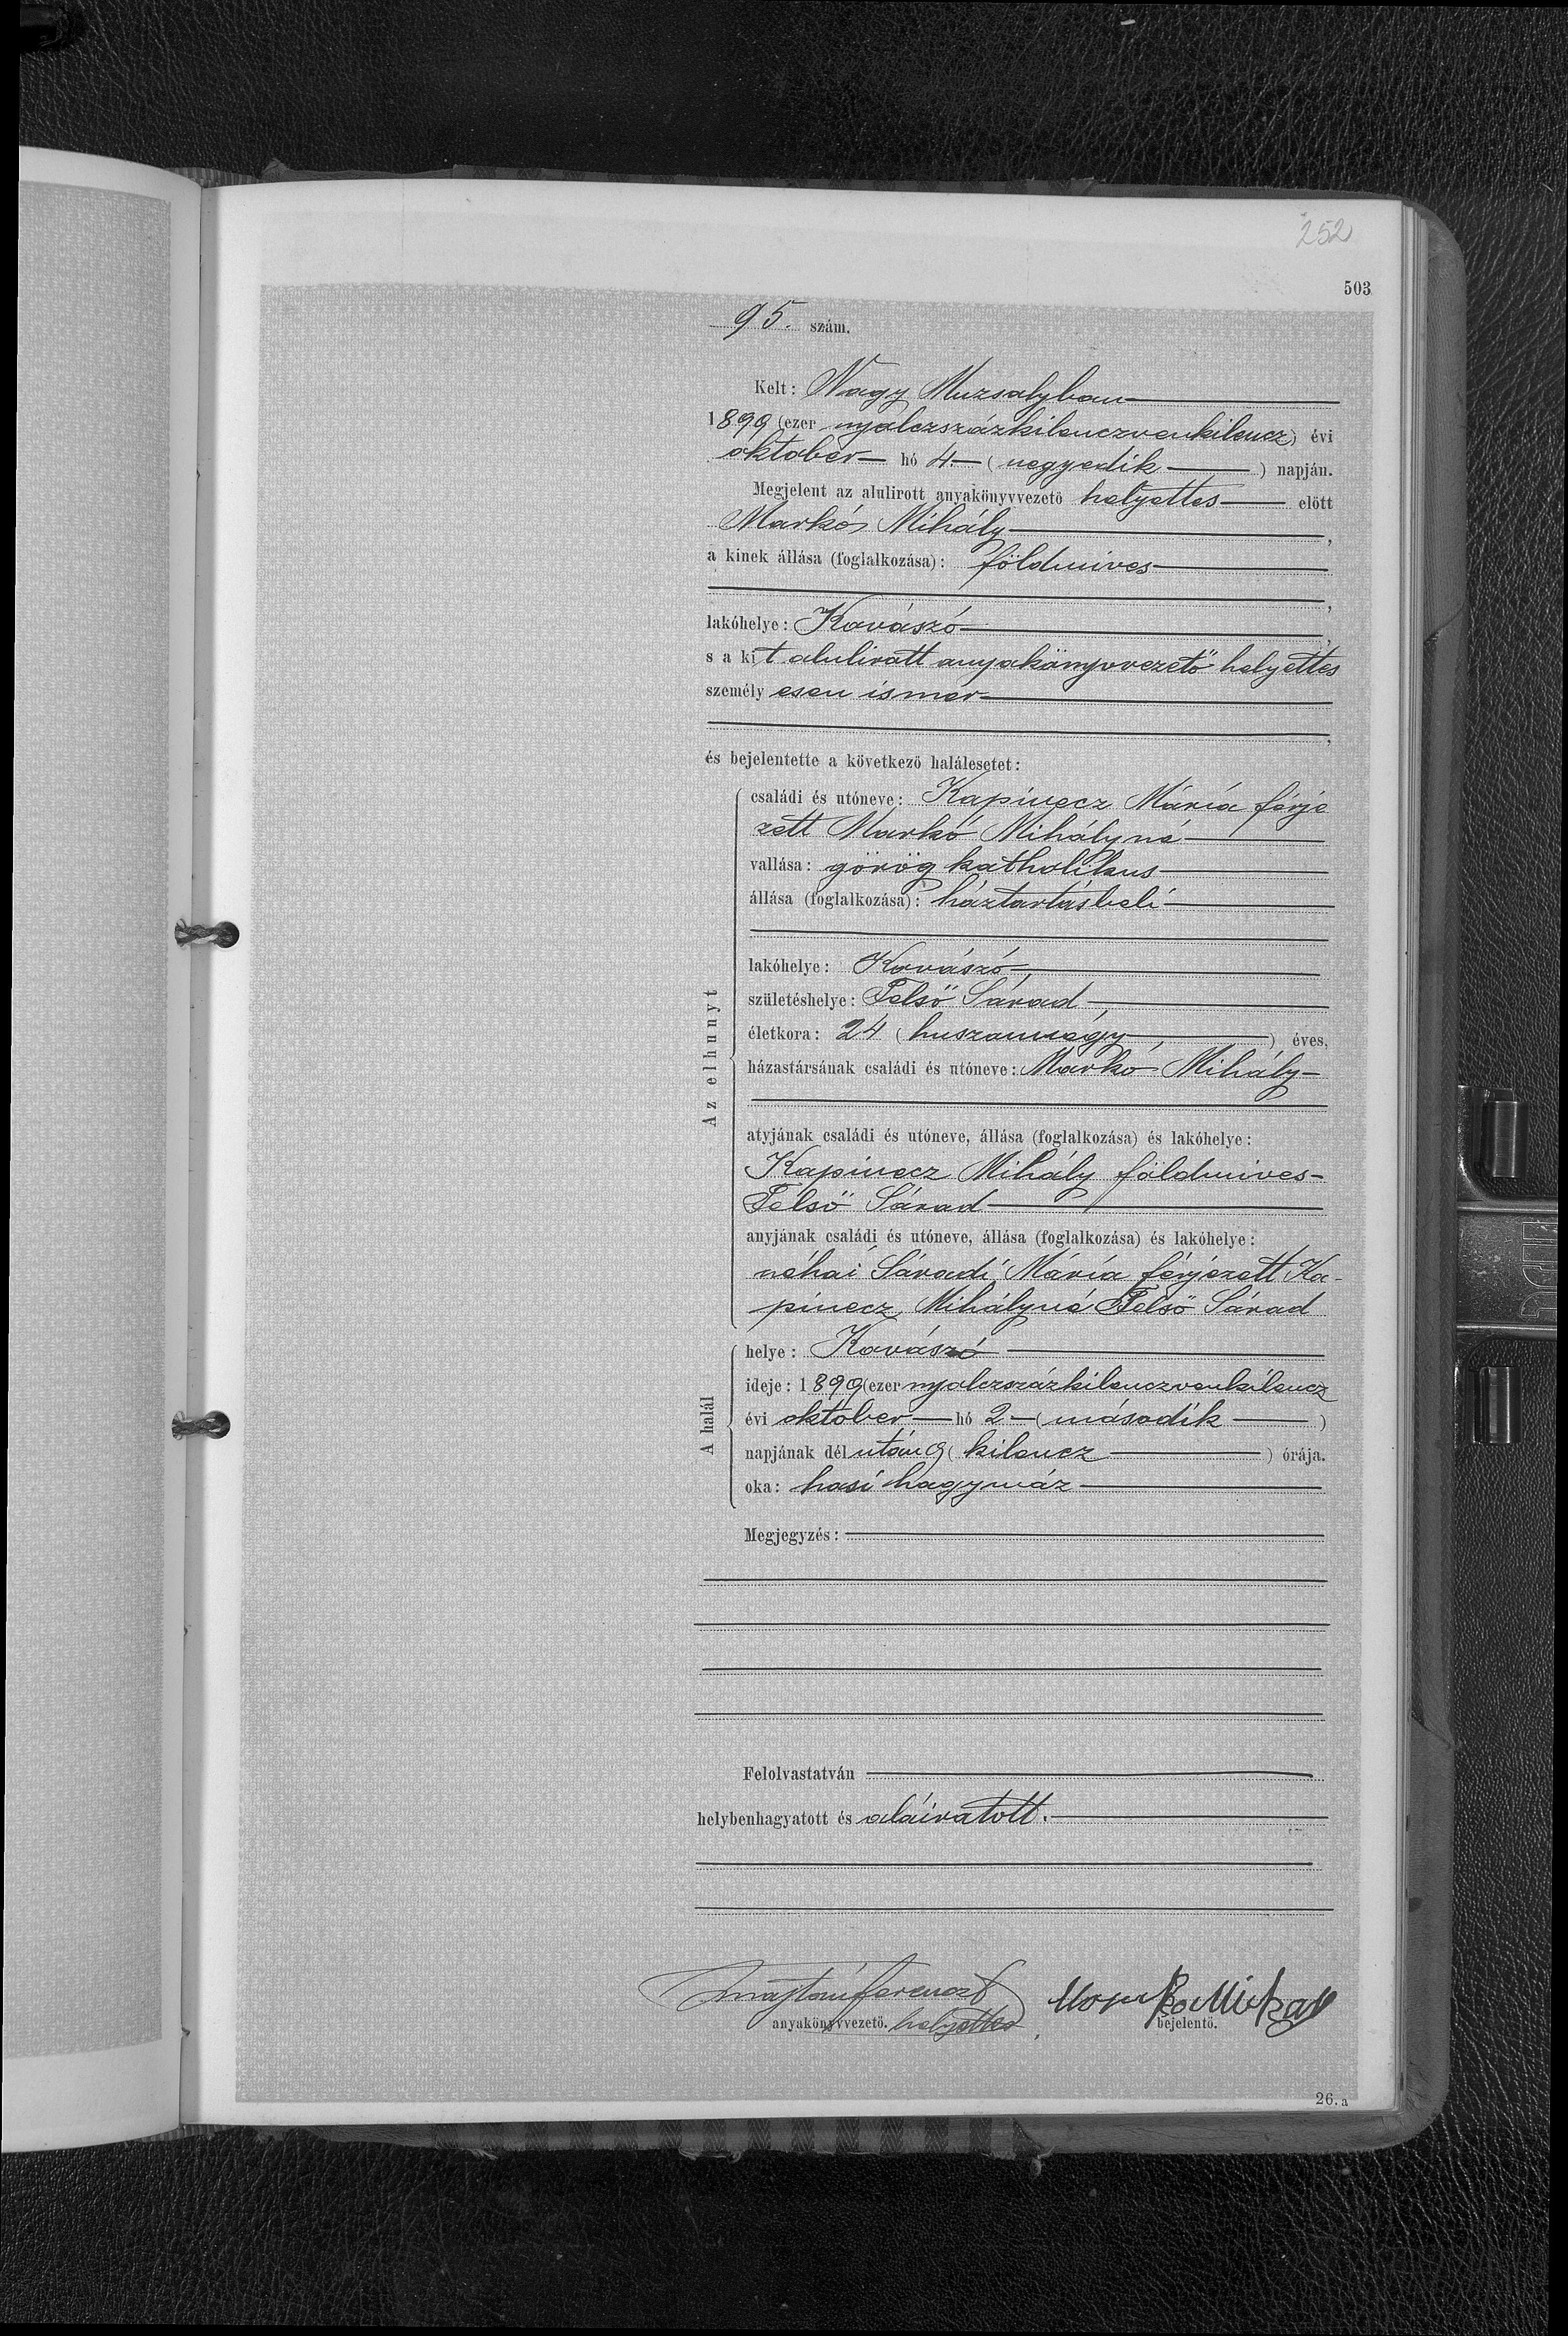 252
503
95. szám.
Kelt: Nagy Muzsalyban
1899 (ezer nyolczszázkilenczvenkilencz) évi
oktober hó 4. (negyedik) napján.
Megjelent az alulirott anyakönyvvezető helyettes előtt
Markó Mihály,
a kinek állása (foglalkozása): földmives
,
lakóhelye: Kovászó,
s a kit alulirott anyakönyvvezető helyettes
személyesen ismer
,
és bejelentette a következő halálesetet:
Az elhunyt
családi és utóneve: Kapinecz Mária férje
zett Markó Mihályné
vallása: görög katholikus
állása (foglalkozása): háztartásbeli
lakóhelye: Kovászó,
születéshelye: Felső Sárad,
életkora: 24 (huszonnégy,) éves,
házastársának családi és utóneve: Markó Mihály
atyjának családi és utóneve, állása (foglalkozása) és lakóhelye:
Kapinecz Mihály földmives
Felső Sárad
anyjának családi és utóneve, állása (foglalkozása) és lakóhelye:
néhai Sáradi Mária férjezett Ka-
pinecz Mihályné Felső Sárad
A halál
helye: Kovászó
ideje: 1899 (ezer nyolczszázkilenczvenkilencz
évi oktober hó 2 (második)
napjának dél után 9 (kilencz) órája.
oka: hasi hagymáz
Megjegyzés:
Felolvastatván
helybenhagyatott és aláiratott.
Ferencz
anyakönyvvezető. helyettes
bejelentő.
26.a